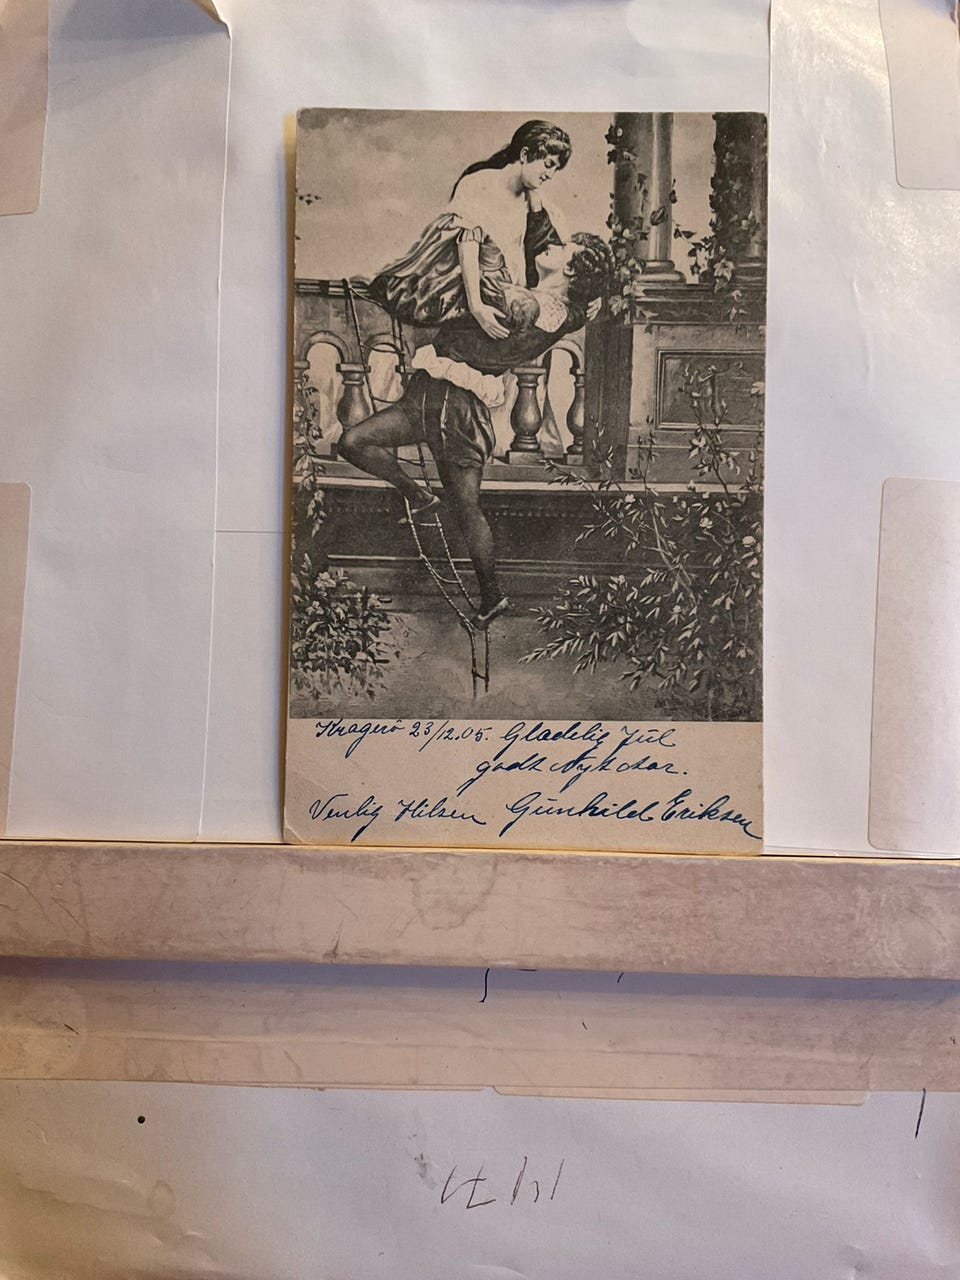 Kragerö 23/12.05. Gladelig Jul
godt Nyt Aar.
Venlig Hilsen Gunhild Eriksen